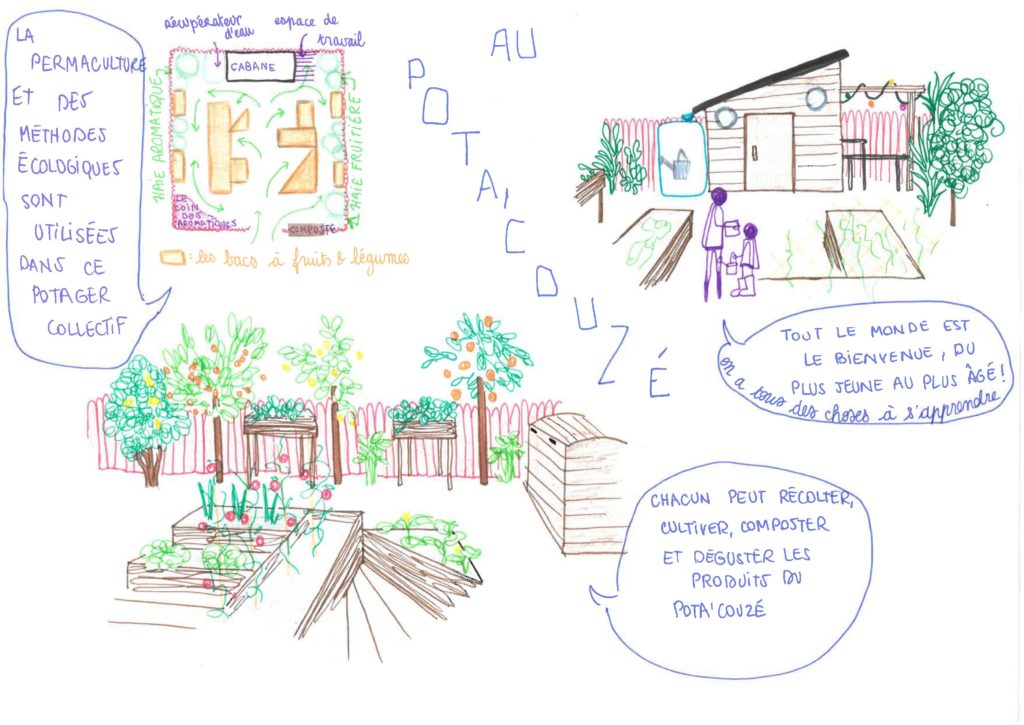 LA
PERMACULTURE
ET DES
MÉTHODES
ÉCOLOGIQUES
SONT
UTILISÉES
DANS CE
POTAGER
COLLECTIF
récupérateur
d'eau
espace de
travail
CABANE
HAIE AROMATIQUE
HAIE FRUITIÈRE
LE
COIN
DES
AROMATIQUES
COMPOSTE
: les bacs à fruits & légumes
AU
POTA'COUZÉ
TOUT LE MONDE EST
LE BIENVENUE, DU
PLUS JEUNE AU PLUS ÂGÉ !
on a tous des choses à s'apprendre
CHACUN PEUT RÉCOLTER,
CULTIVER, COMPOSTER
ET DÉGUSTER LES
PRODUITS DU
POTA'COUZÉ